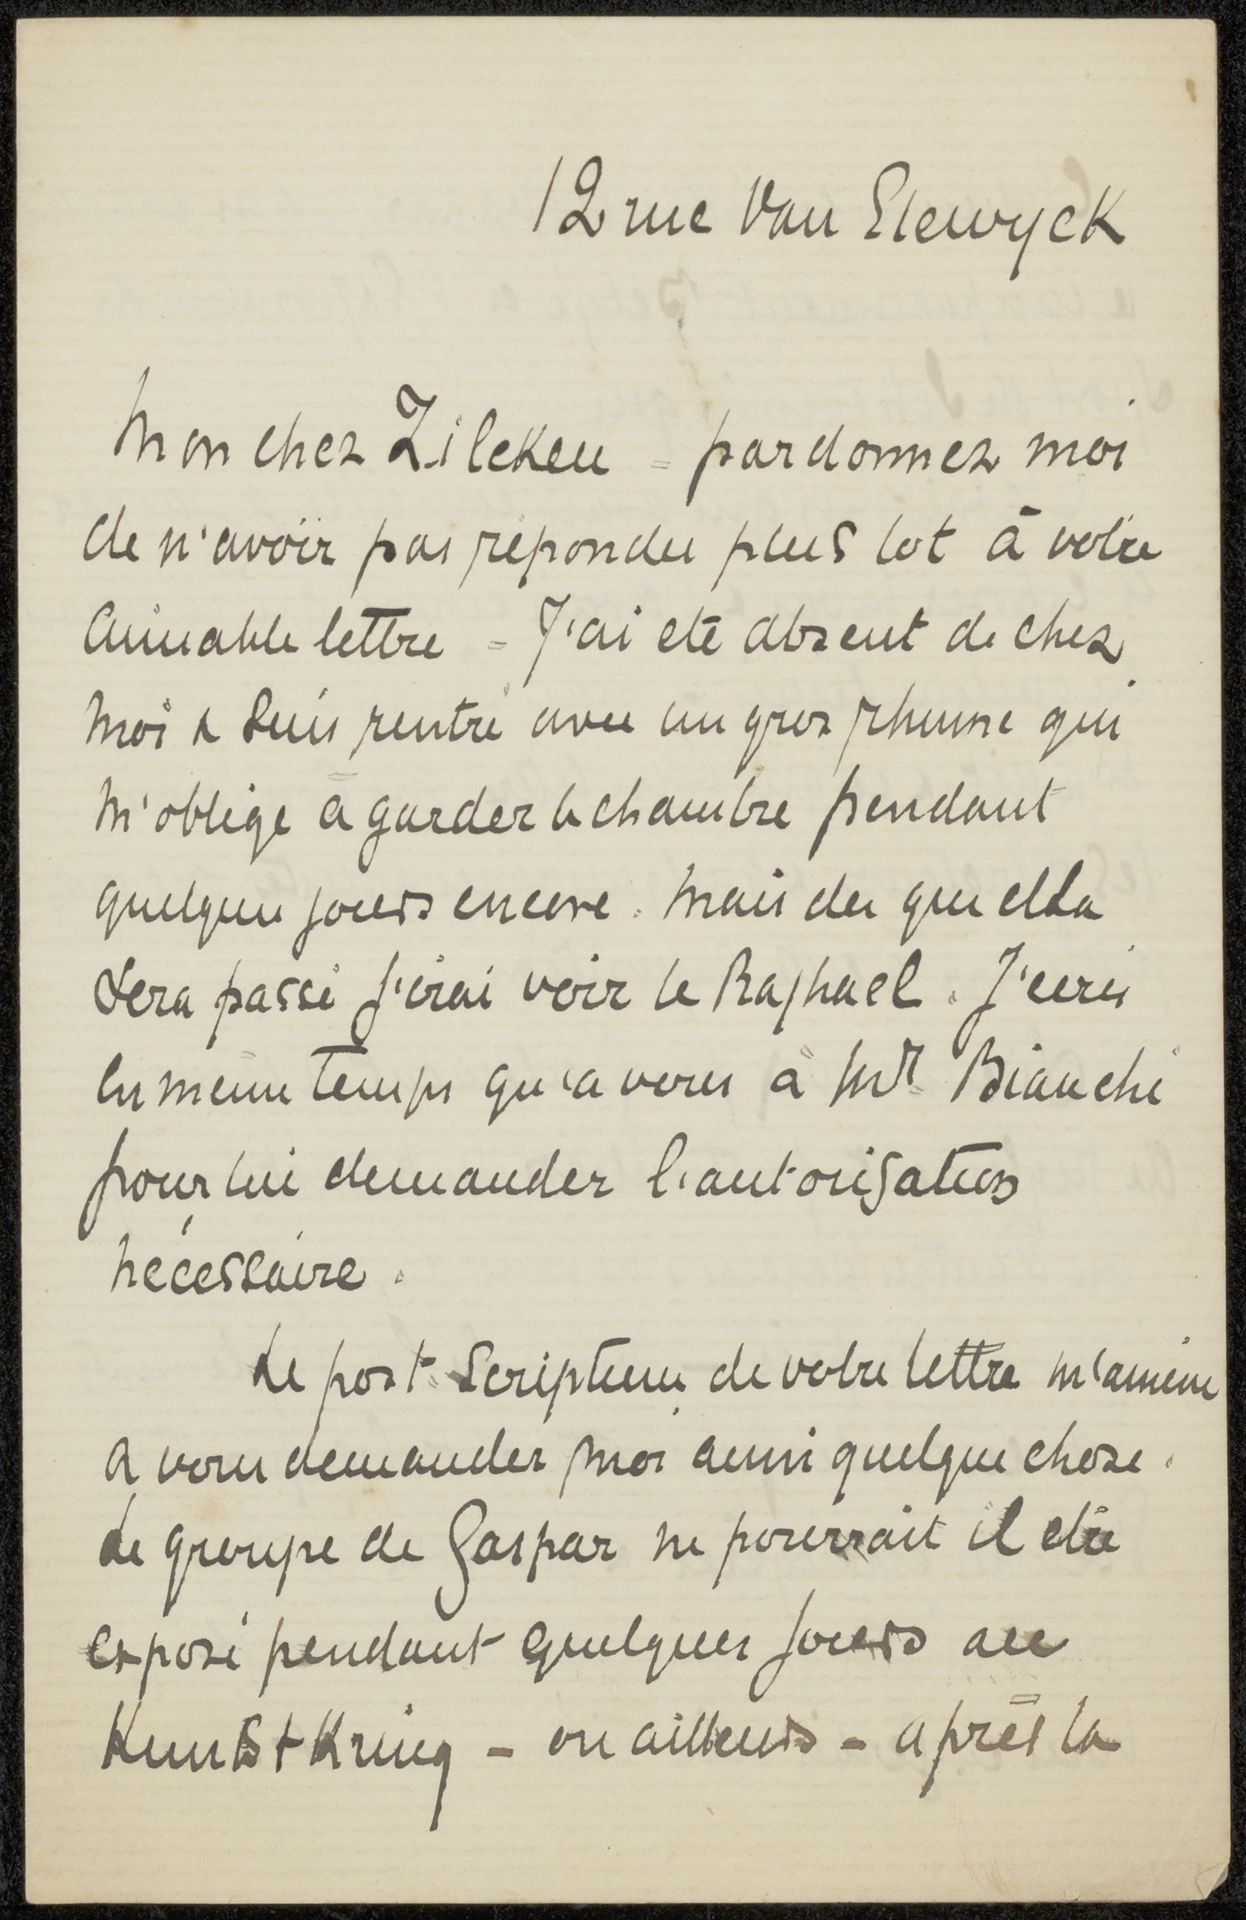 12 rue Van Elewyck
Mon cher Zilcken = pardonnez moi
de n'avoir pas répondu plus tot à votre
aimable lettre = J'ai été absent de chez
moi & suis rentré avec un gros rhume qui
m'oblige à garder la chambre pendant
quelques jours encore. Mais des que cela
sera passé j'irai voir le Raphael. J'ecris
en meme temps qu'a vous à Mr Bianchi
pour lui demander l'autorisation
nécessaire.
Le post-scriptum de votre lettre m'amène
a vous demander moi aussi quelque chose.
Le groupe de Gaspar ne pourrait il etre
exposé pendant quelques jours au
Kunst Kring - ou ailleurs - après la